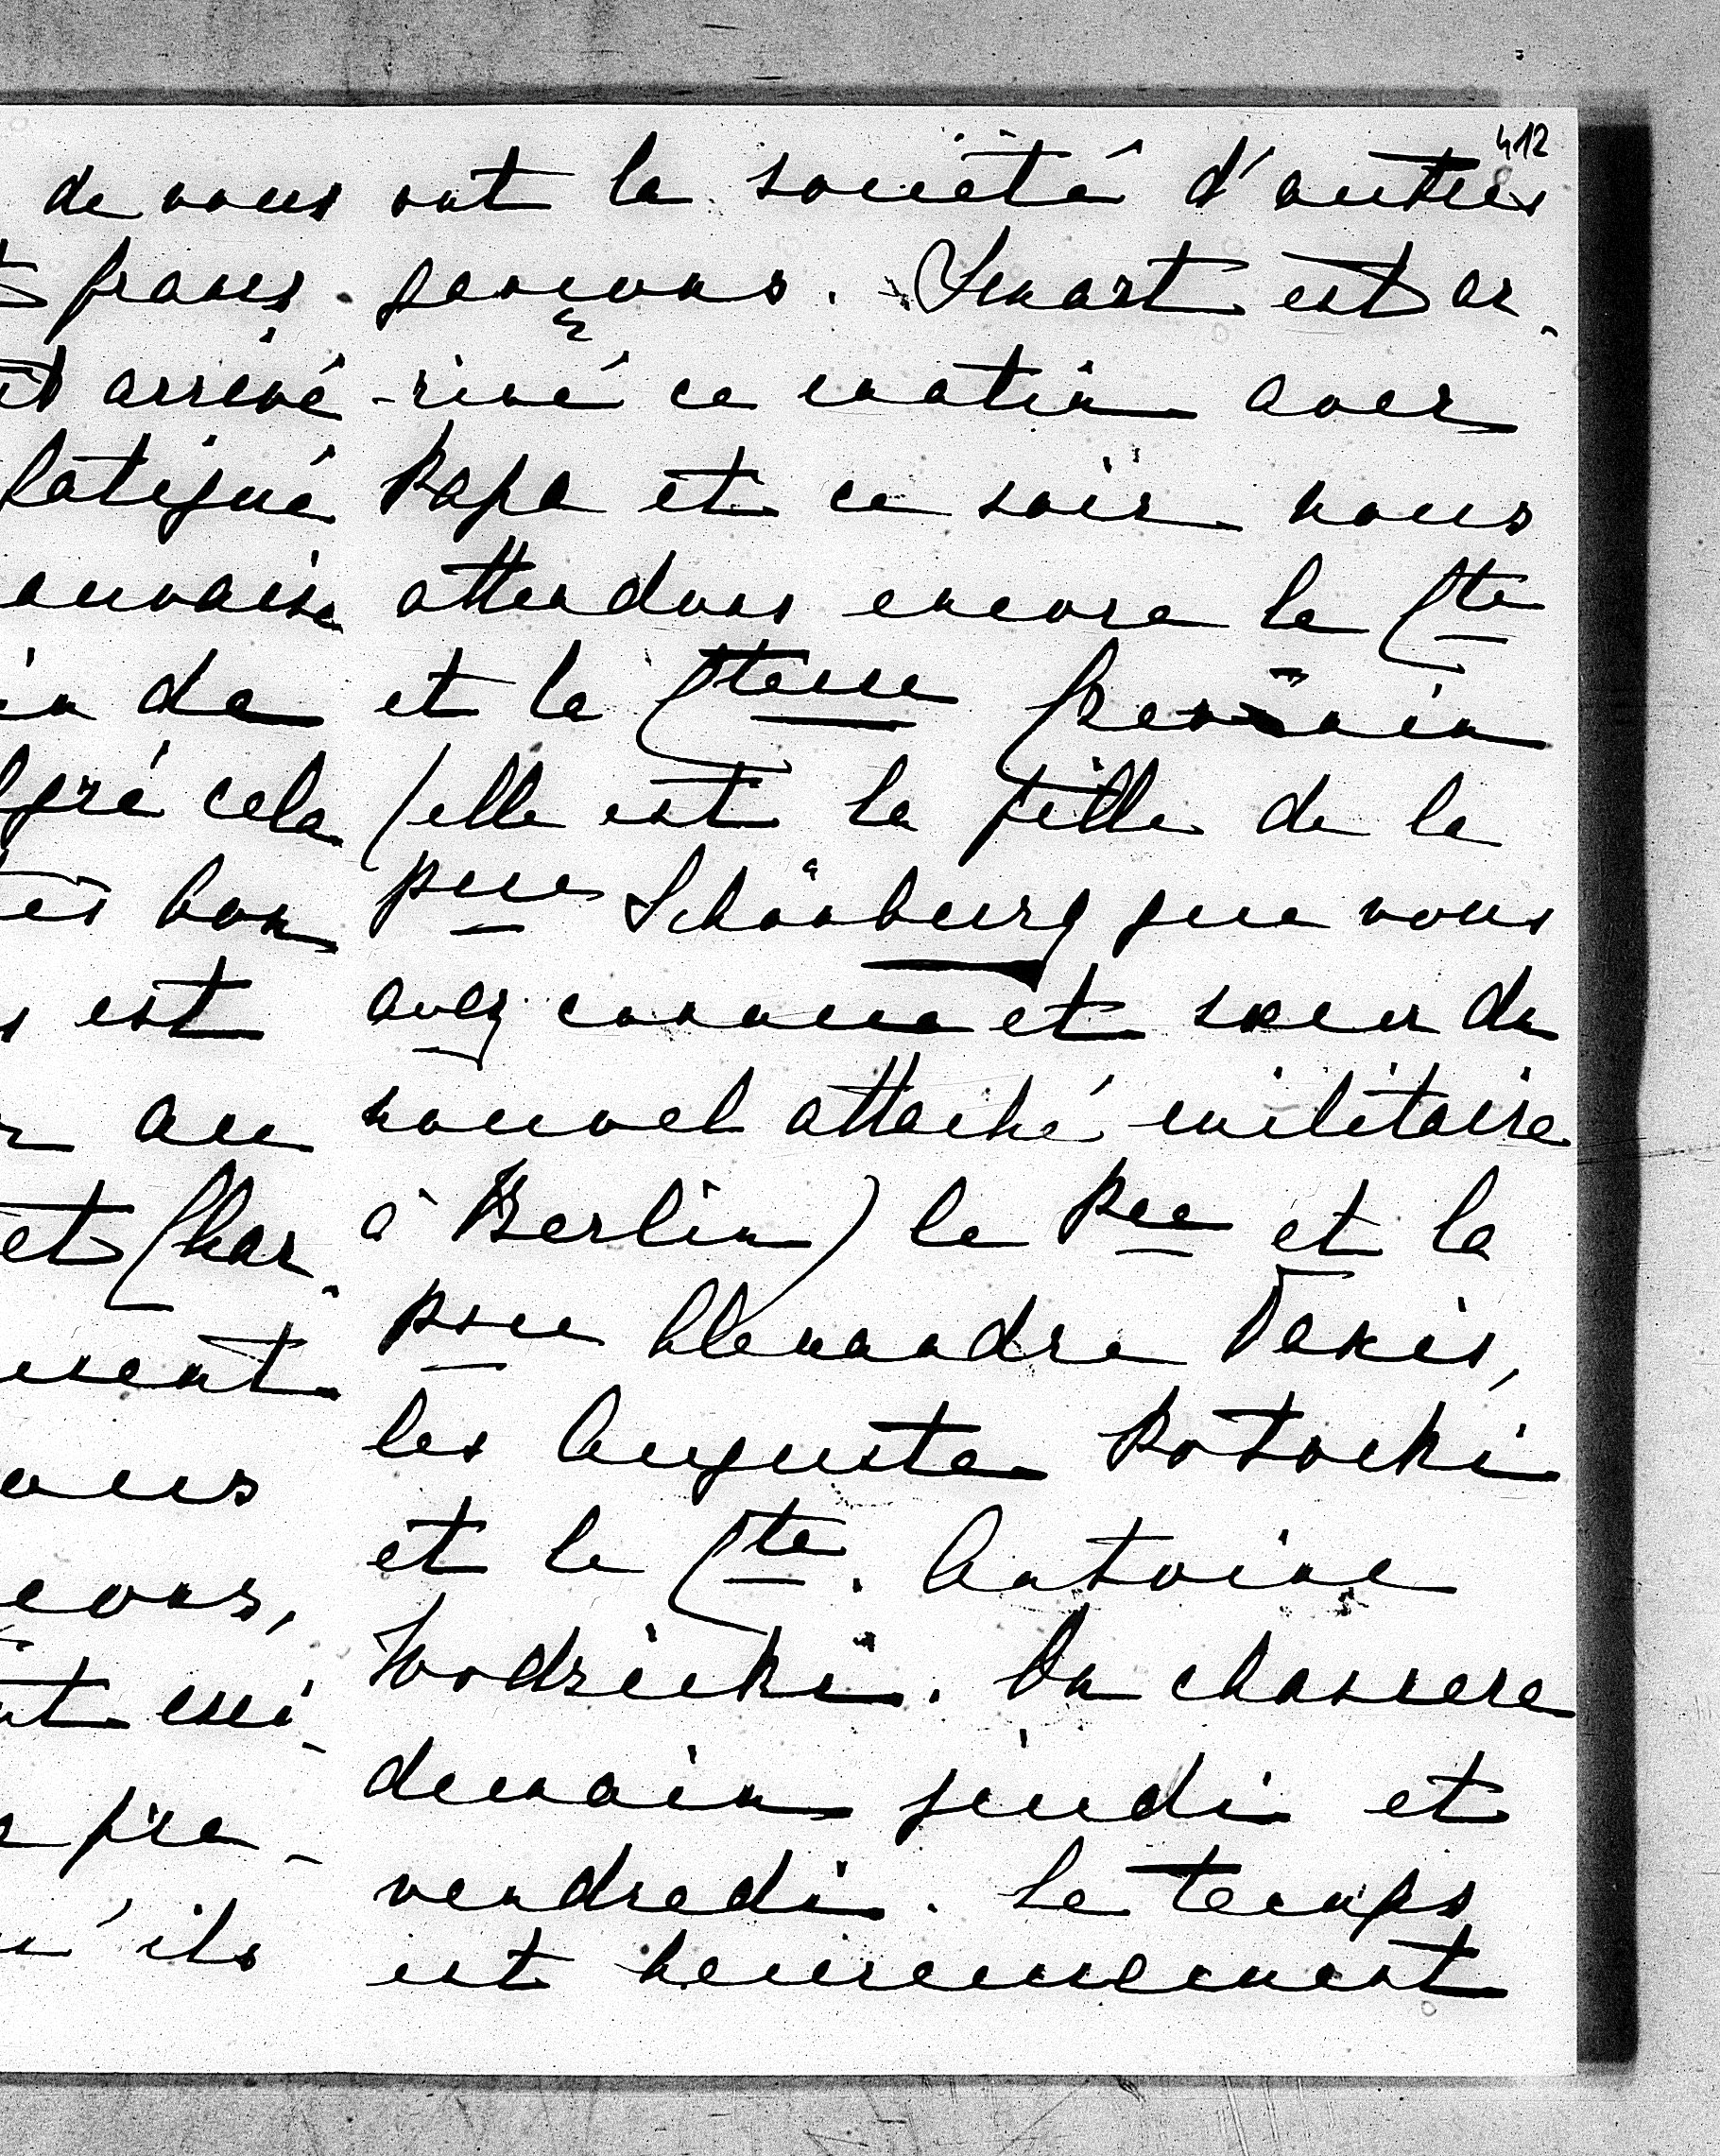 412
de nous
frances.
arrivé
fatigué
mauvaise
in de
lgré cela
tés bon
est
au
et Char-
ement
ous
cons,
nt mi-
pre-
u'ils
ont la société d'autres
garçons. Smart est ar-
-rivé ce matin avec
Papa et ce soir nous
attendons encore le Cte
et la Ctesse
(elle est la fille de la
psse Schönburg que vous
avez connue et sœur du
nouvel attaché militaire
à Berlin) le Pce et la
psse Alexandre Taxis,
les Auguste Potocki
et le Cte. Antoine
Wodzicki. On chassera
demain jeudi et
vendredi. Le temps
est heureusement